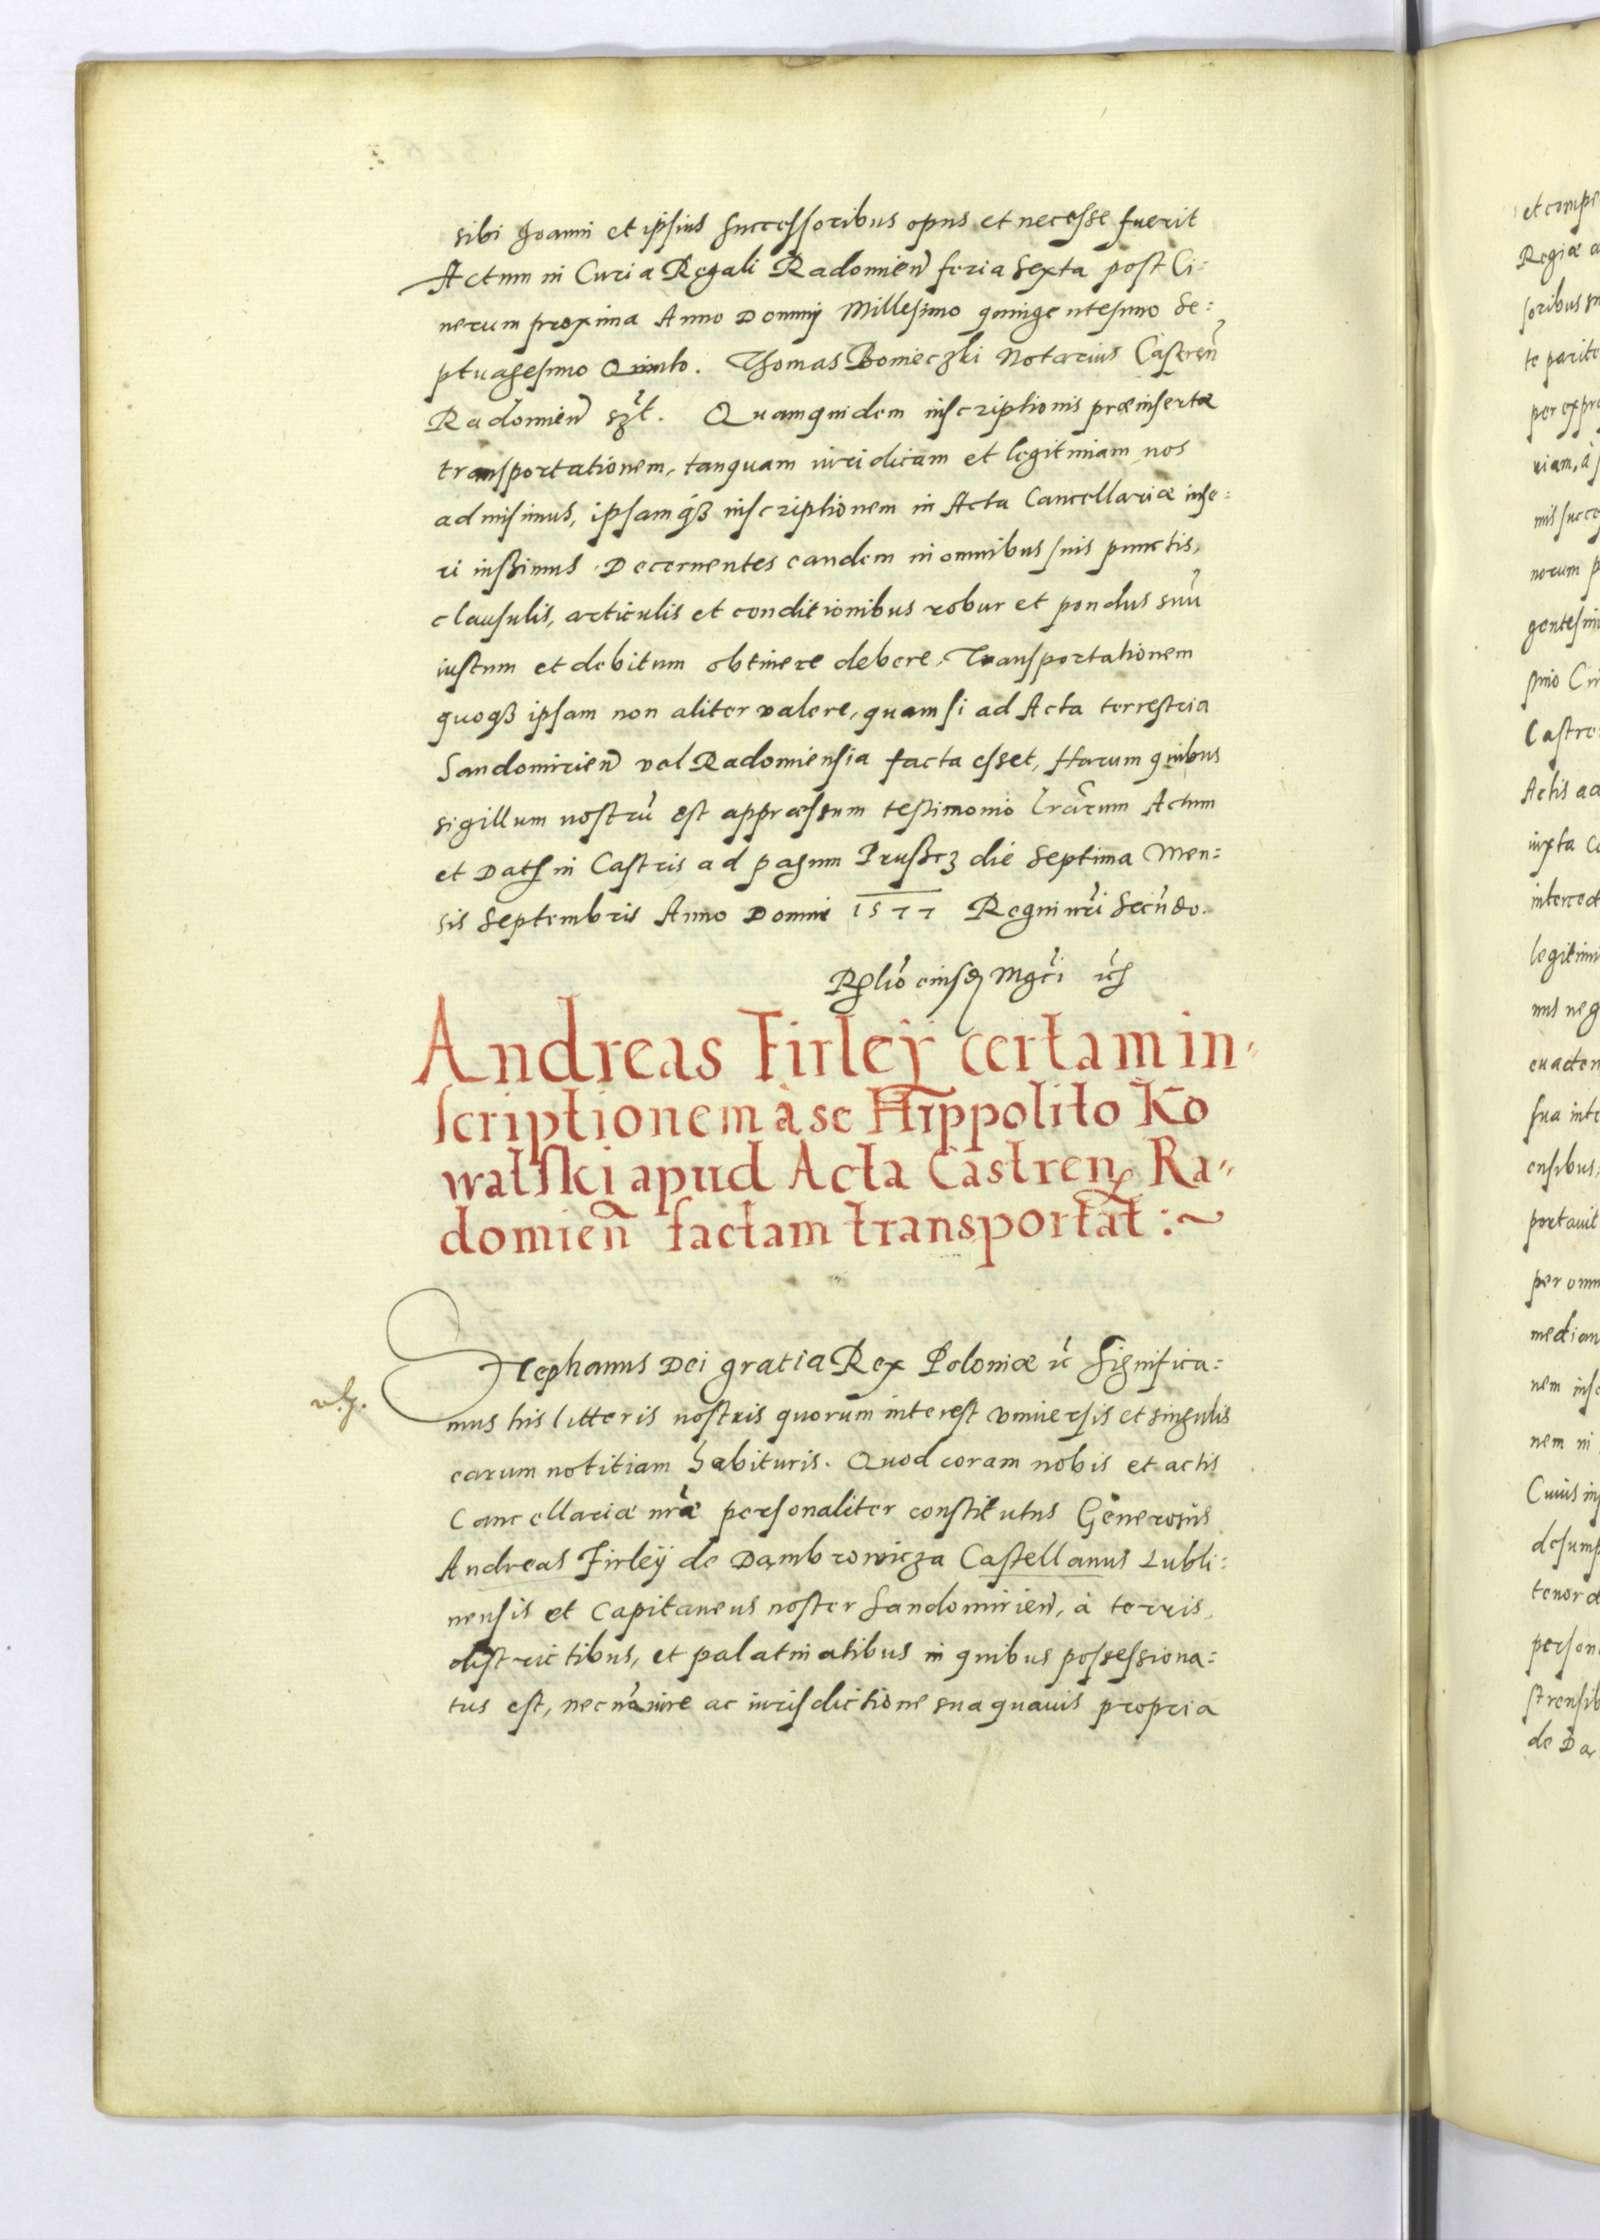 sibi Joanni et ipsius successoribus opus et necesse fuerit
Actum in Curia Regali Radomien̄ feria sexta post Ci:
nerum proxima Anno Dominij Millesimo quingentesimo Se:
ptuagesimo Quinto. Thomas Bonieczki Notarius Castren̄
Radomien̄ sszt. Quamquidem inscriptionis præinsertæ
transportationem, tanquam iuridicam et legitimam nos
admisimus, ipsamqʒ inscriptionem in Acta Cancellariæ inse:
ri iussimus. Decernentes eandem in omnibus suis punctis,
clausulis, articulis et conditionibus robur et pondus suū
iustum et debitum obtinere debere, Transportationem
quoqʒ ipsam non aliter valere, quam si ad Acta terrestria
Sandomirien̄ vel Radomiensia facta esset, Harum quibus
sigillum nostrū est appræssum testimonio lrārum Actum
et Dat in Castris ad pagum Prusscz die Septima Men:
sis Septembris Anno Domini 1577 Regni nri Secūdo.
Rlio eiusd Mgci
Andreas Firleÿ certam in-
scriptionem à se Hippolito Ko
walski apud Acta Castren Ra-
domien̄ factam transportat :~
Stephanus Dei gratia Rex Poloniæ Significa:
mus his litteris nostris quorum interest vniuersis et singulis
earum notitiam habituris. Quod coram nobis et actis
Cancellariæ nræ personaliter constitutus Generosus
Andreas Firleÿ de Dambrowicza Castellanus Lubli:
nensis et Capitaneus noster Sandomirien̄, à terris,
districtibus, et palatinatibus in quibus possessiona:
tus est, necnō iure ac iurisdictione sua quauis propria
et compe
Regiæ a
soribus su
te parite
per expre
riam, à
mis succe
norum p
gentesim
simo
Castre
Actis ad
iuxta
interced
legitimi
mus neg
euaden
sua inte
ensibus,
portauit
per omn
median
nem insc
nem in
Cuius in
desump
tenor
person
strensib
de Da